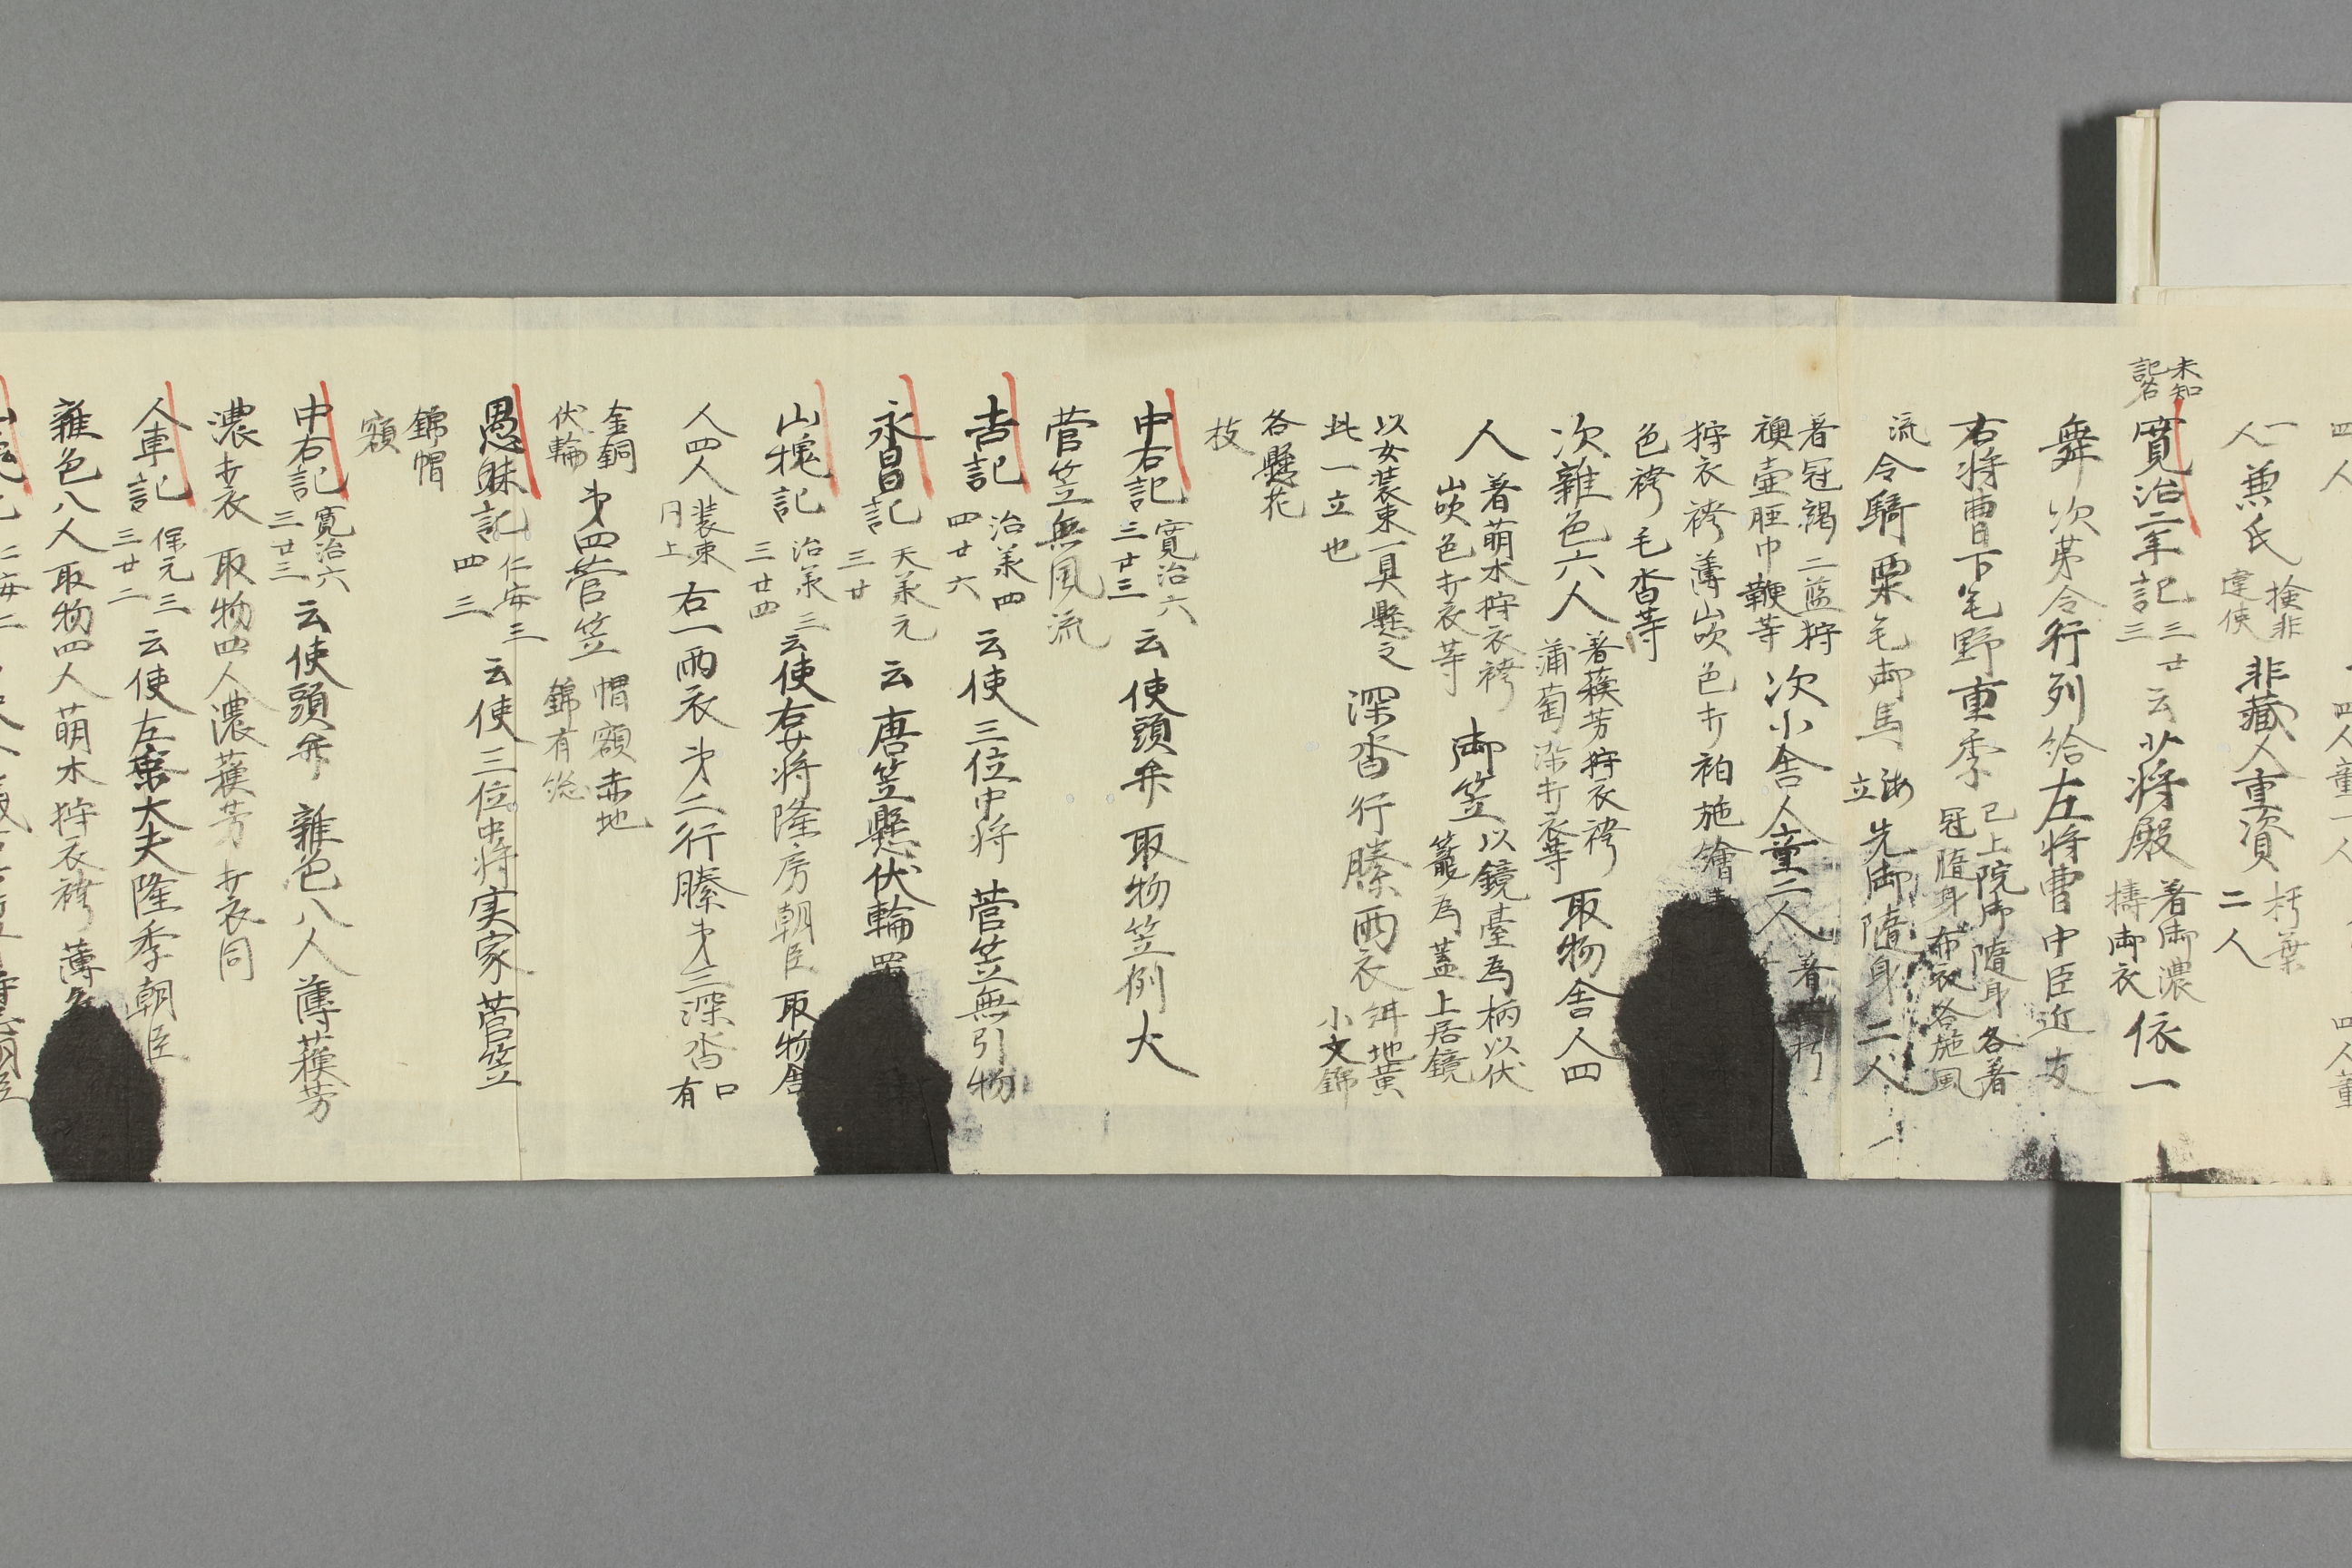 四人
四人童一人
四人童
一人 兼氏 検非違使 非蔵人重資 二人 朽葉
未知記名 寛治二年記 三廿三 云 少将殿 着御濃擣御衣 依一
舞次第令行列給左将曹中臣近友
右将曹下毛野重季 已上院御随身各著冠随身布衣各施風
流 令騎栗毛御馬 先御随身二人
着冠褐二藍狩襖壷脛巾鞭等 次小舎人童二人 着
狩衣袴薄山吹色打衵施繪
色袴毛沓等
次雜色六人 着蘓芳狩衣袴蒲萄染打衣等 取物舎人四
人 着萌木狩衣袴山吹色打衣等 御笠 以鏡臺為柄以伏籠為蓋上居鏡
以女装束一具懸之 深沓行騰雨衣 地黄小文錦
此一立也
各懸花
枝
中右記 寛治六三廿三 云使頭弁 取物笠例大
菅笠無風流
吉記 治美四四廿六 云使三位中将 菅笠無引物
永昌記 天美元三廿 云唐笠懸伏輪
山槐記 治美三三廿四 云使右少将隆房朝臣 取物舎
人四人 装束同上 右一雨衣 第二行騰第三深沓 有口
金銅伏輪 第四菅笠 帽額赤地錦有総
愚昧記 仁安三四三 云使三位中将実家菅笠
錦帽
額
中右記 寛治六三廿三 云使頭弁 雜色八人薄蘓芳
濃打衣 取物四人濃蘓芳打衣同
人車記 保元三三廿二 云使左京大夫隆季朝臣
雜色八人取物四人萌木狩衣袴 薄
山槐記 仁安二